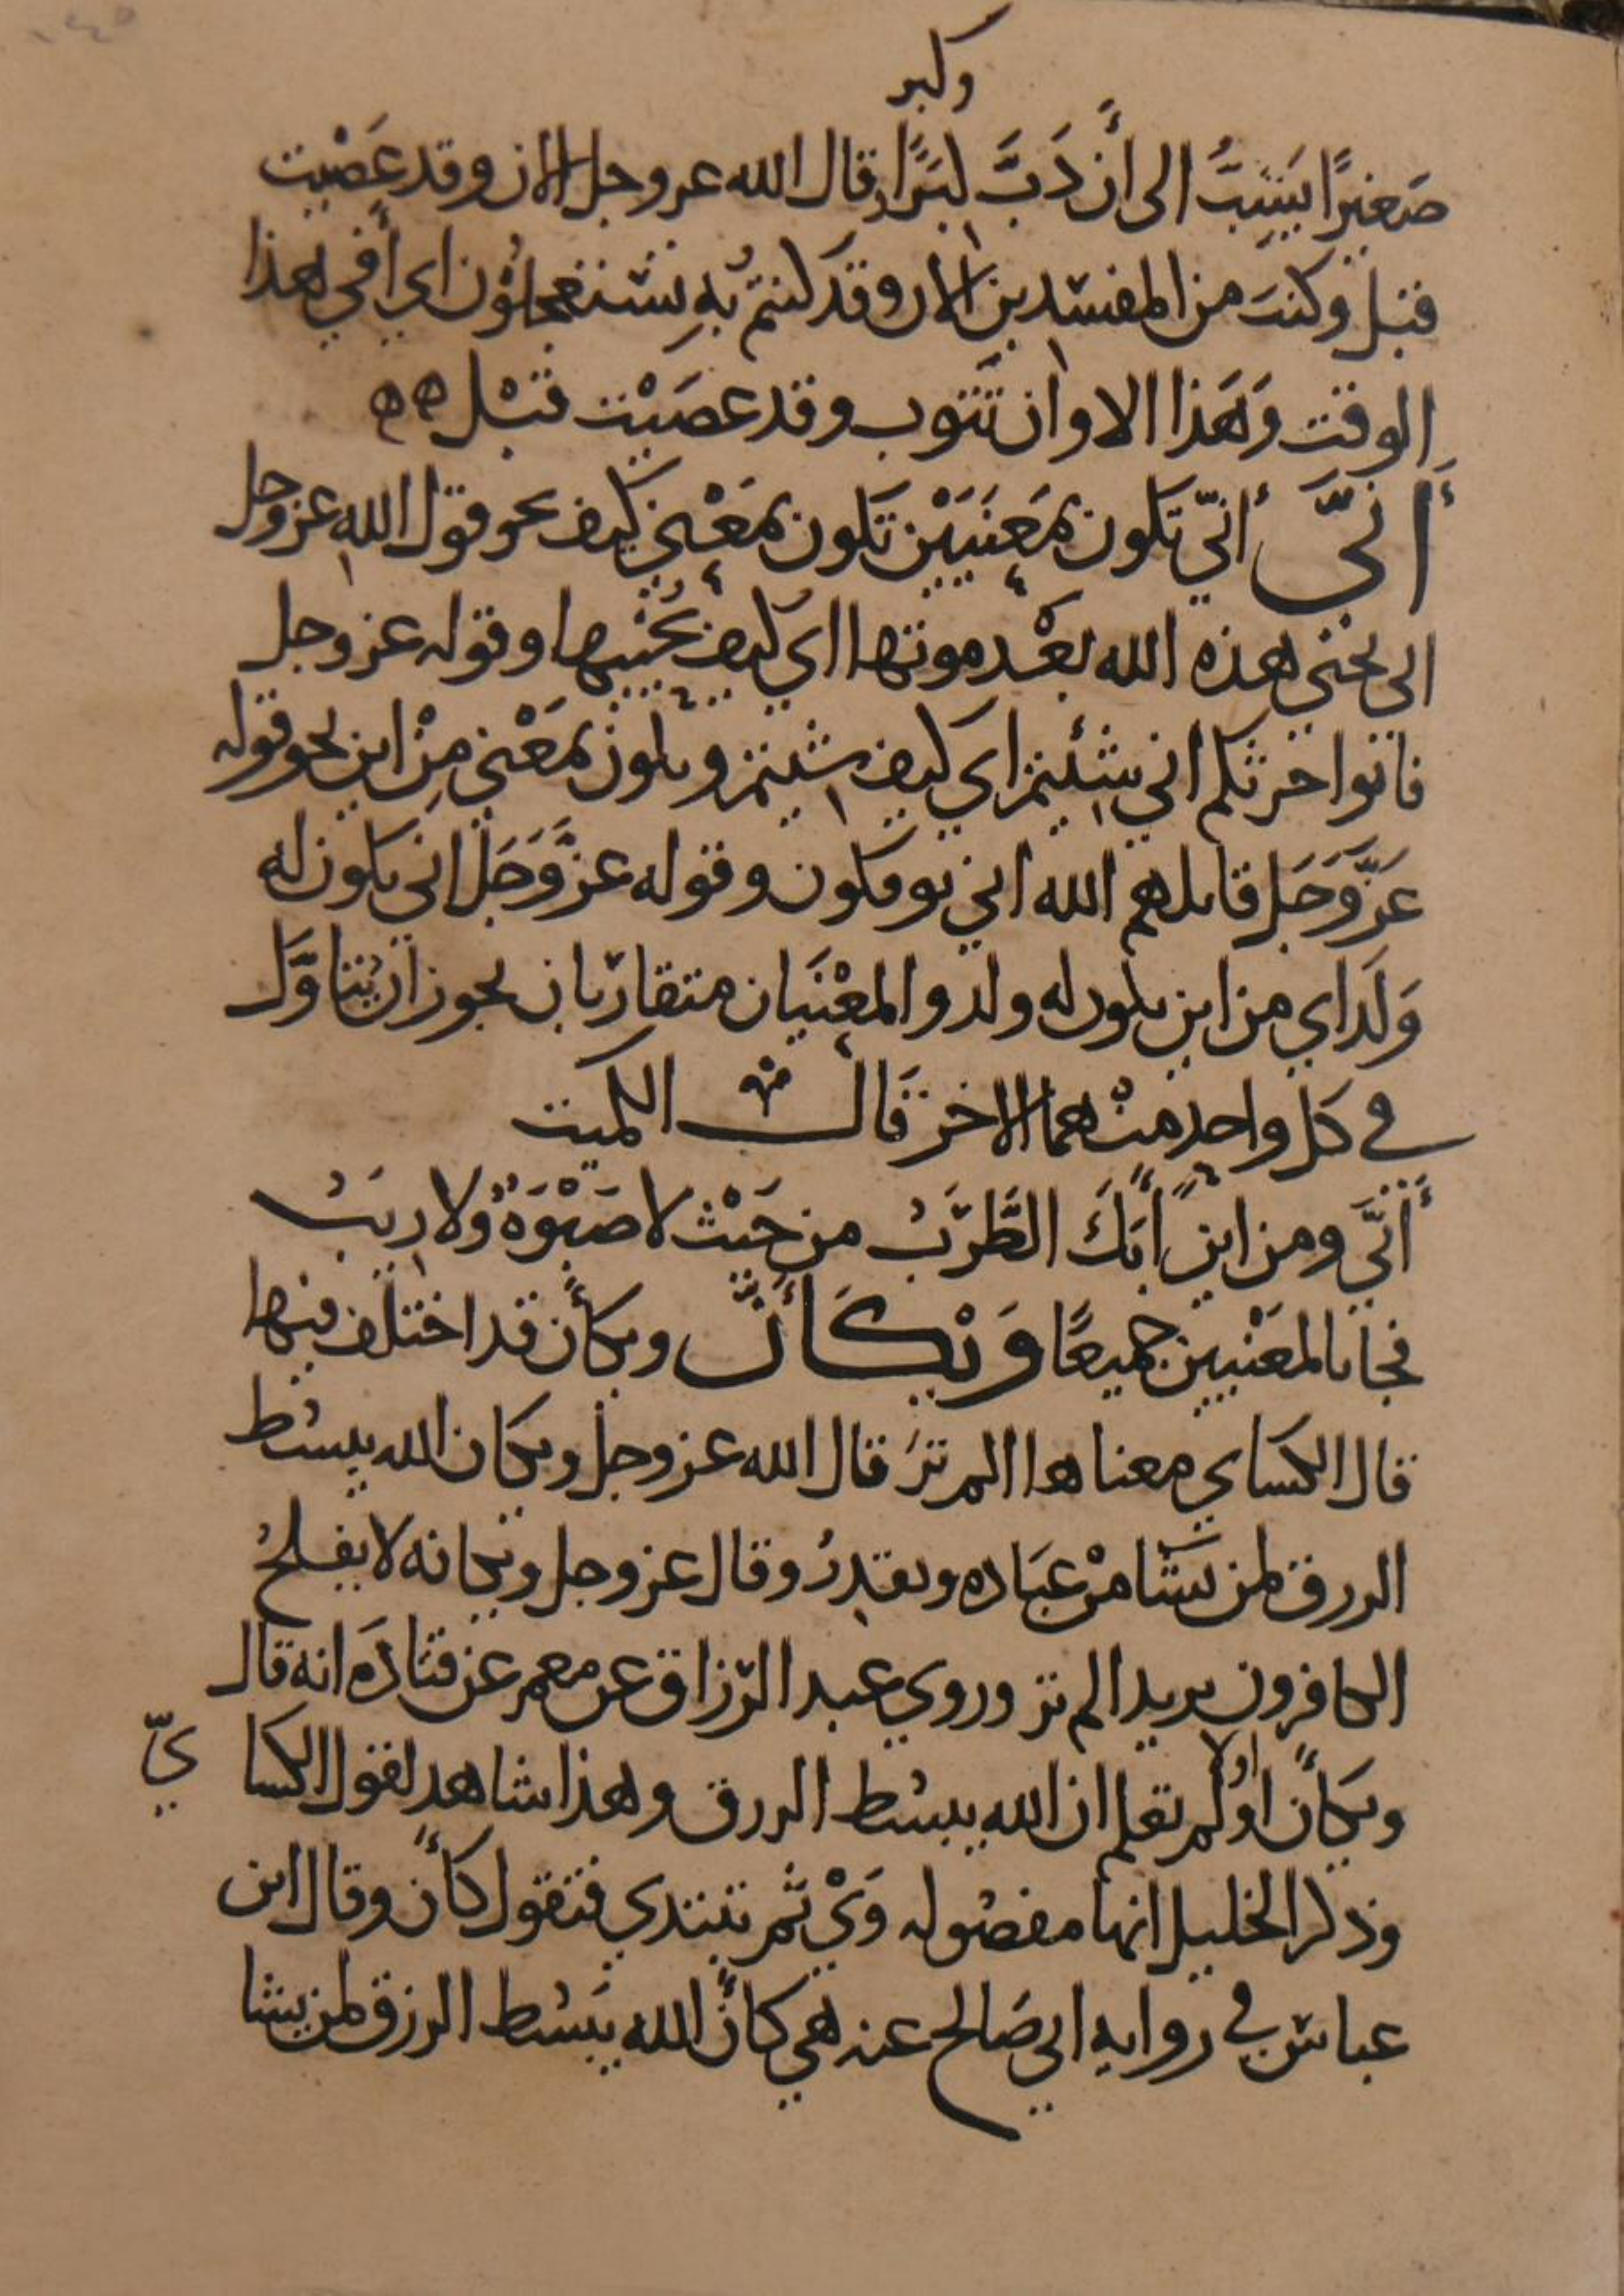 وكبر
صَغيرًا يَشِبُّ الى أَن دَبَّ كبيرًا قال الله عز وجل الان وقد عَصَيْت
قبل وكنت من المفسدين الان وقد كنتم به تستعجلون اي أفي هذا
الوقت وَهَذا الاوان تَتُوب وقد عصَيْت قَبْل
أَنَّى أنّي تكون بمَعنَيَيْن تكون بمَعْنى كيف نحو قول الله عز وجل
انى يحيي هذه الله بعْد موتها اي كيف يُحْييها وقوله عز وجل
فاتوا حرثكم انى شئتم اي كيف شيتم وتكون بمَعْنى مِنْ اين نحو قوله
عَزَّ وَجَل قاتلهم الله انى يوفكون وقوله عزَّ وَجَل انى يكون له
وَلَد اي من اين يكون له ولد والمعْنَيَان متقاربان يجوز ان يُتناوَّل
في كل واحد منْهما الاخر قَالَ الكميت
أَنَّى ومن اين آبَكَ الطَّرَبُ من حَيْث لا صَبْوَةٌ ولا رِيَبُ
فجا بالمعْنيين جميعًا وَيْكَأَنَّ ويكأَن قد اختلف فيها
قال الكساي معناها الم تَر قال الله عز وجل ويكان الله يبسُط
الرزق لمن يَشا مِنْ عِبَاده ويقدِرُ وقال عز وجل ويكانه لا يفلحُ
الكافرون يريد الم تر وروي عبد الرّزاق عن معمر عن قتادَه انه قال
ويكأَن أوَلم اولا تعلم ان الله يبسُط الرزق وهذا شاهد لقول الكسا يّ
وذكر الخليل انها مفصُوله وَيْ ثم تبتدي فتقول كأَن وقال ابن
عباس في روايه ابي صَالح عنه هي كأَنَّ الله يَبْسُط الرزق لمن يشا